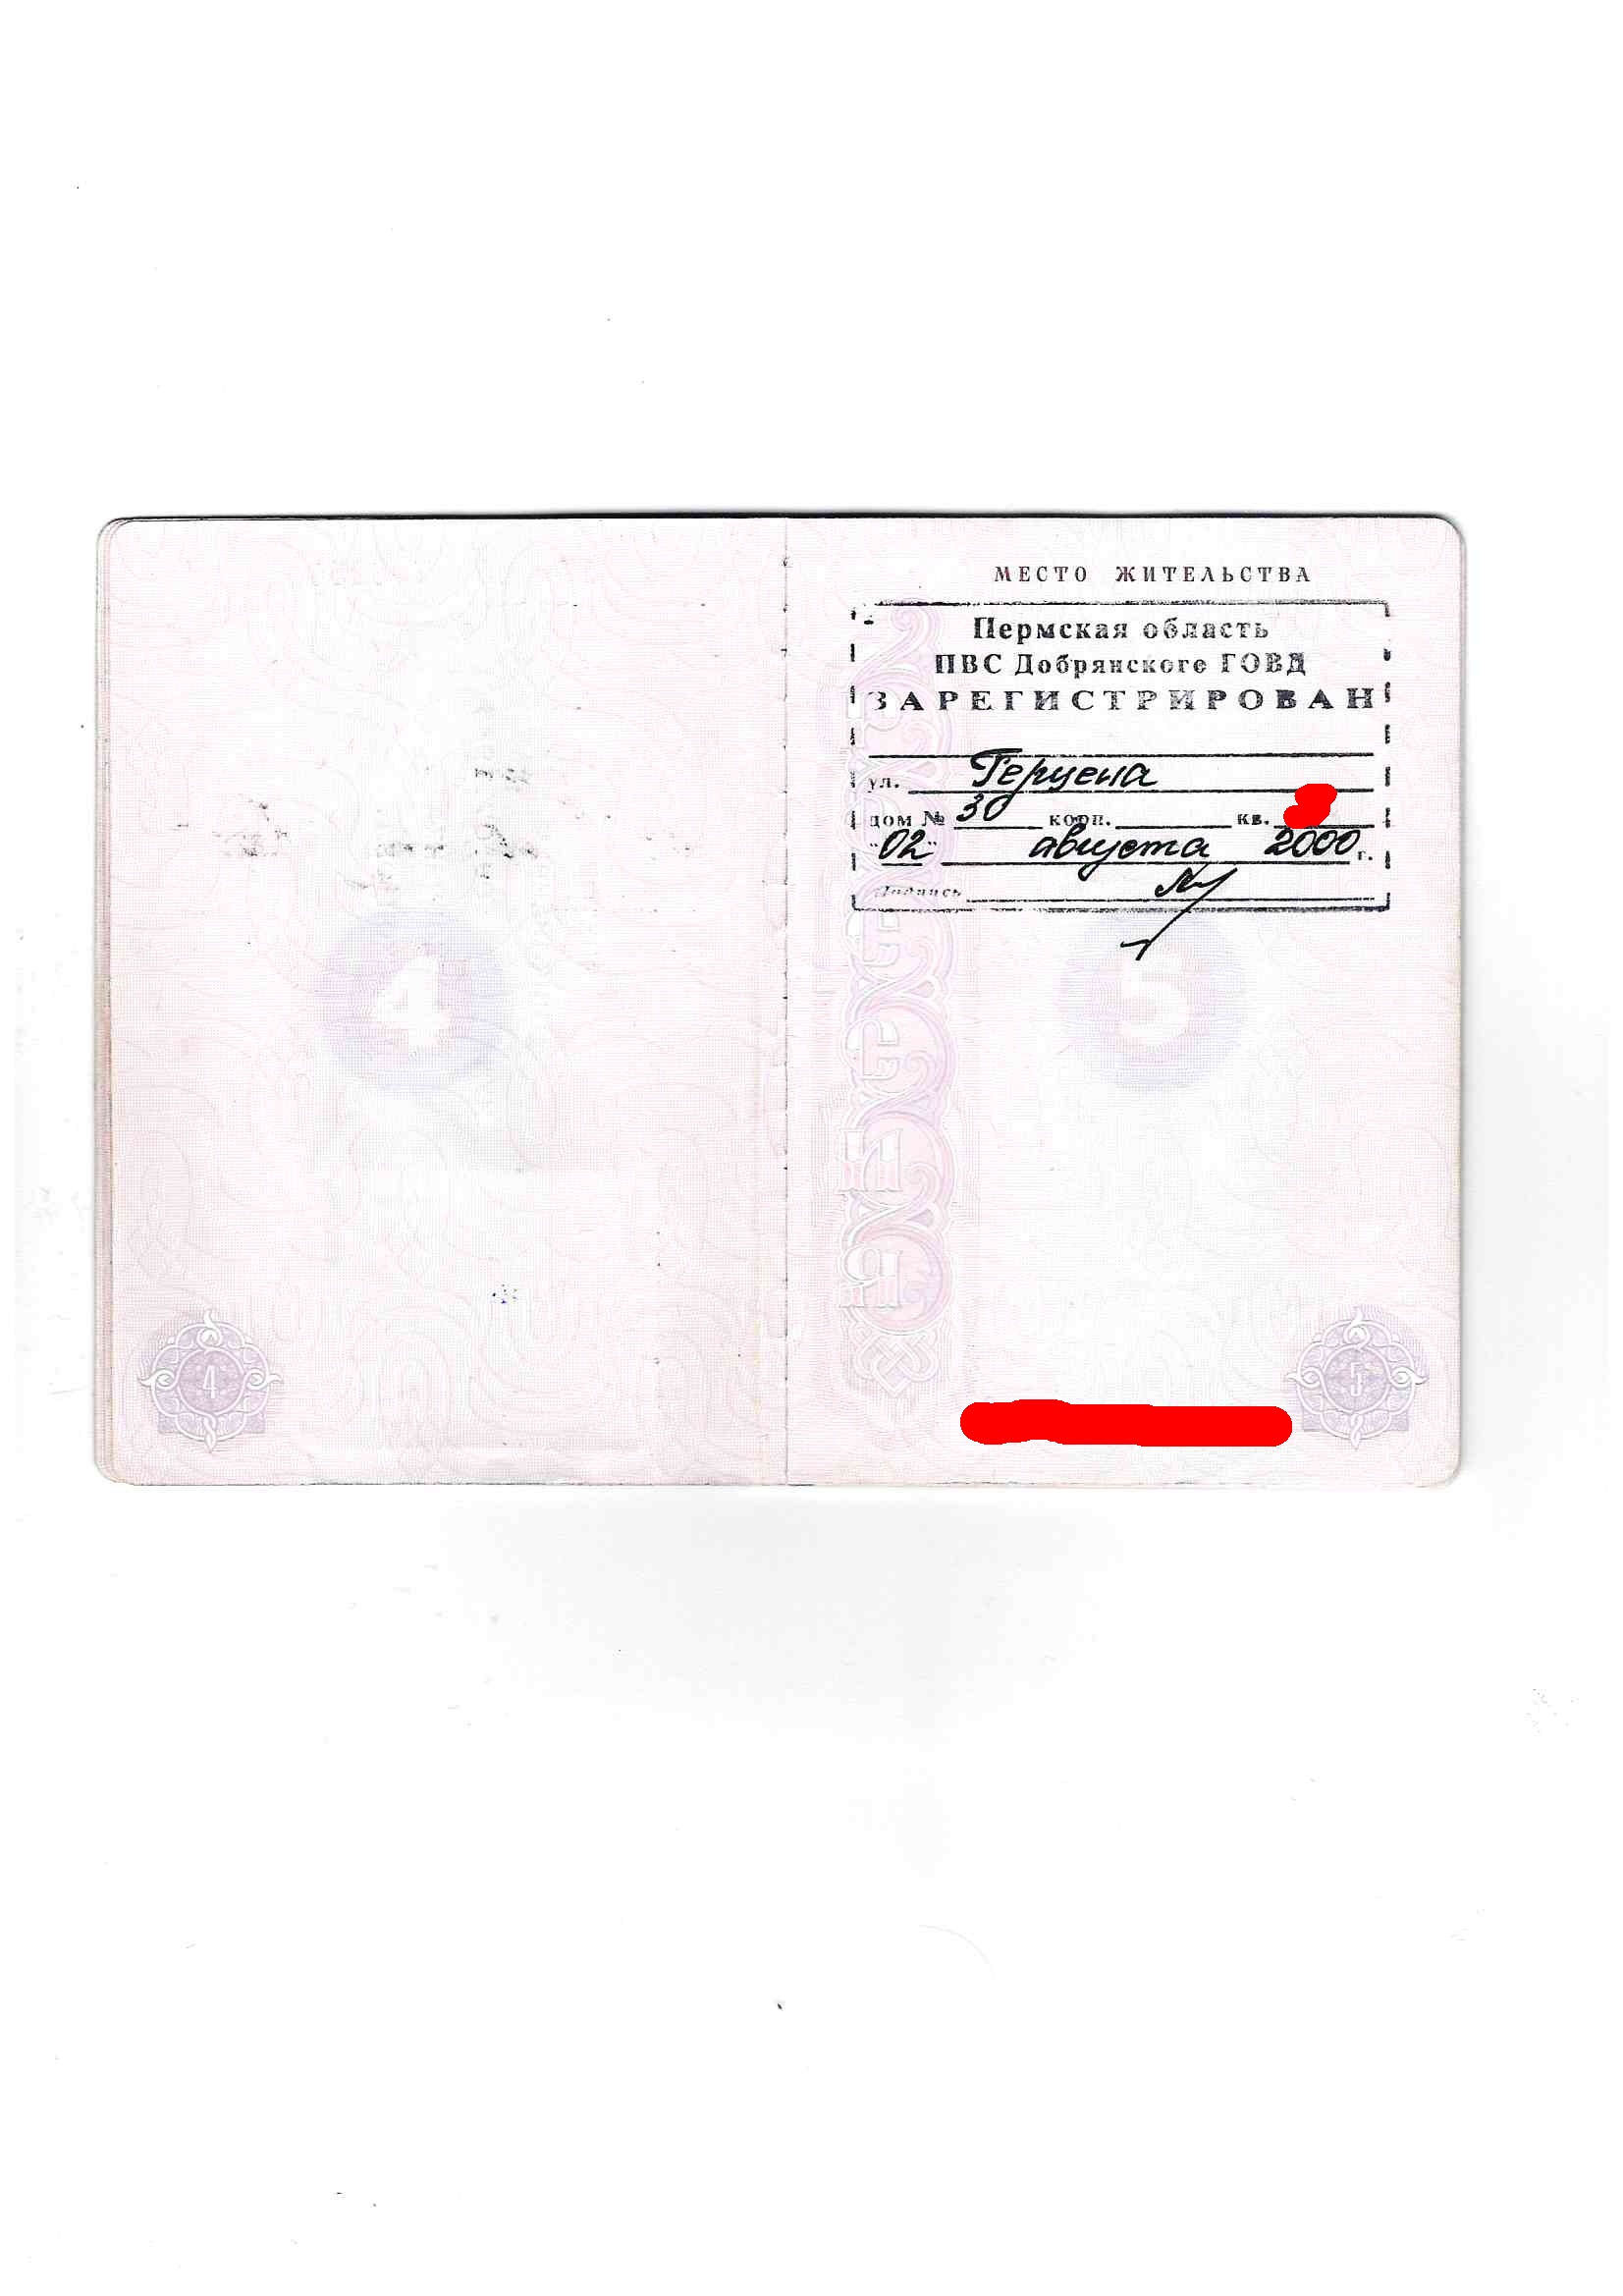 МЕСТО ЖИТЕЛЬСТВА
Пермская область
ПВС Добрянского ГОВД
ЗАРЕГИСТРИРОВАН
ул. Герцена
дом № 30 корп. кв.
"02" августа 2000 г.
Подпись
4 5
4 5